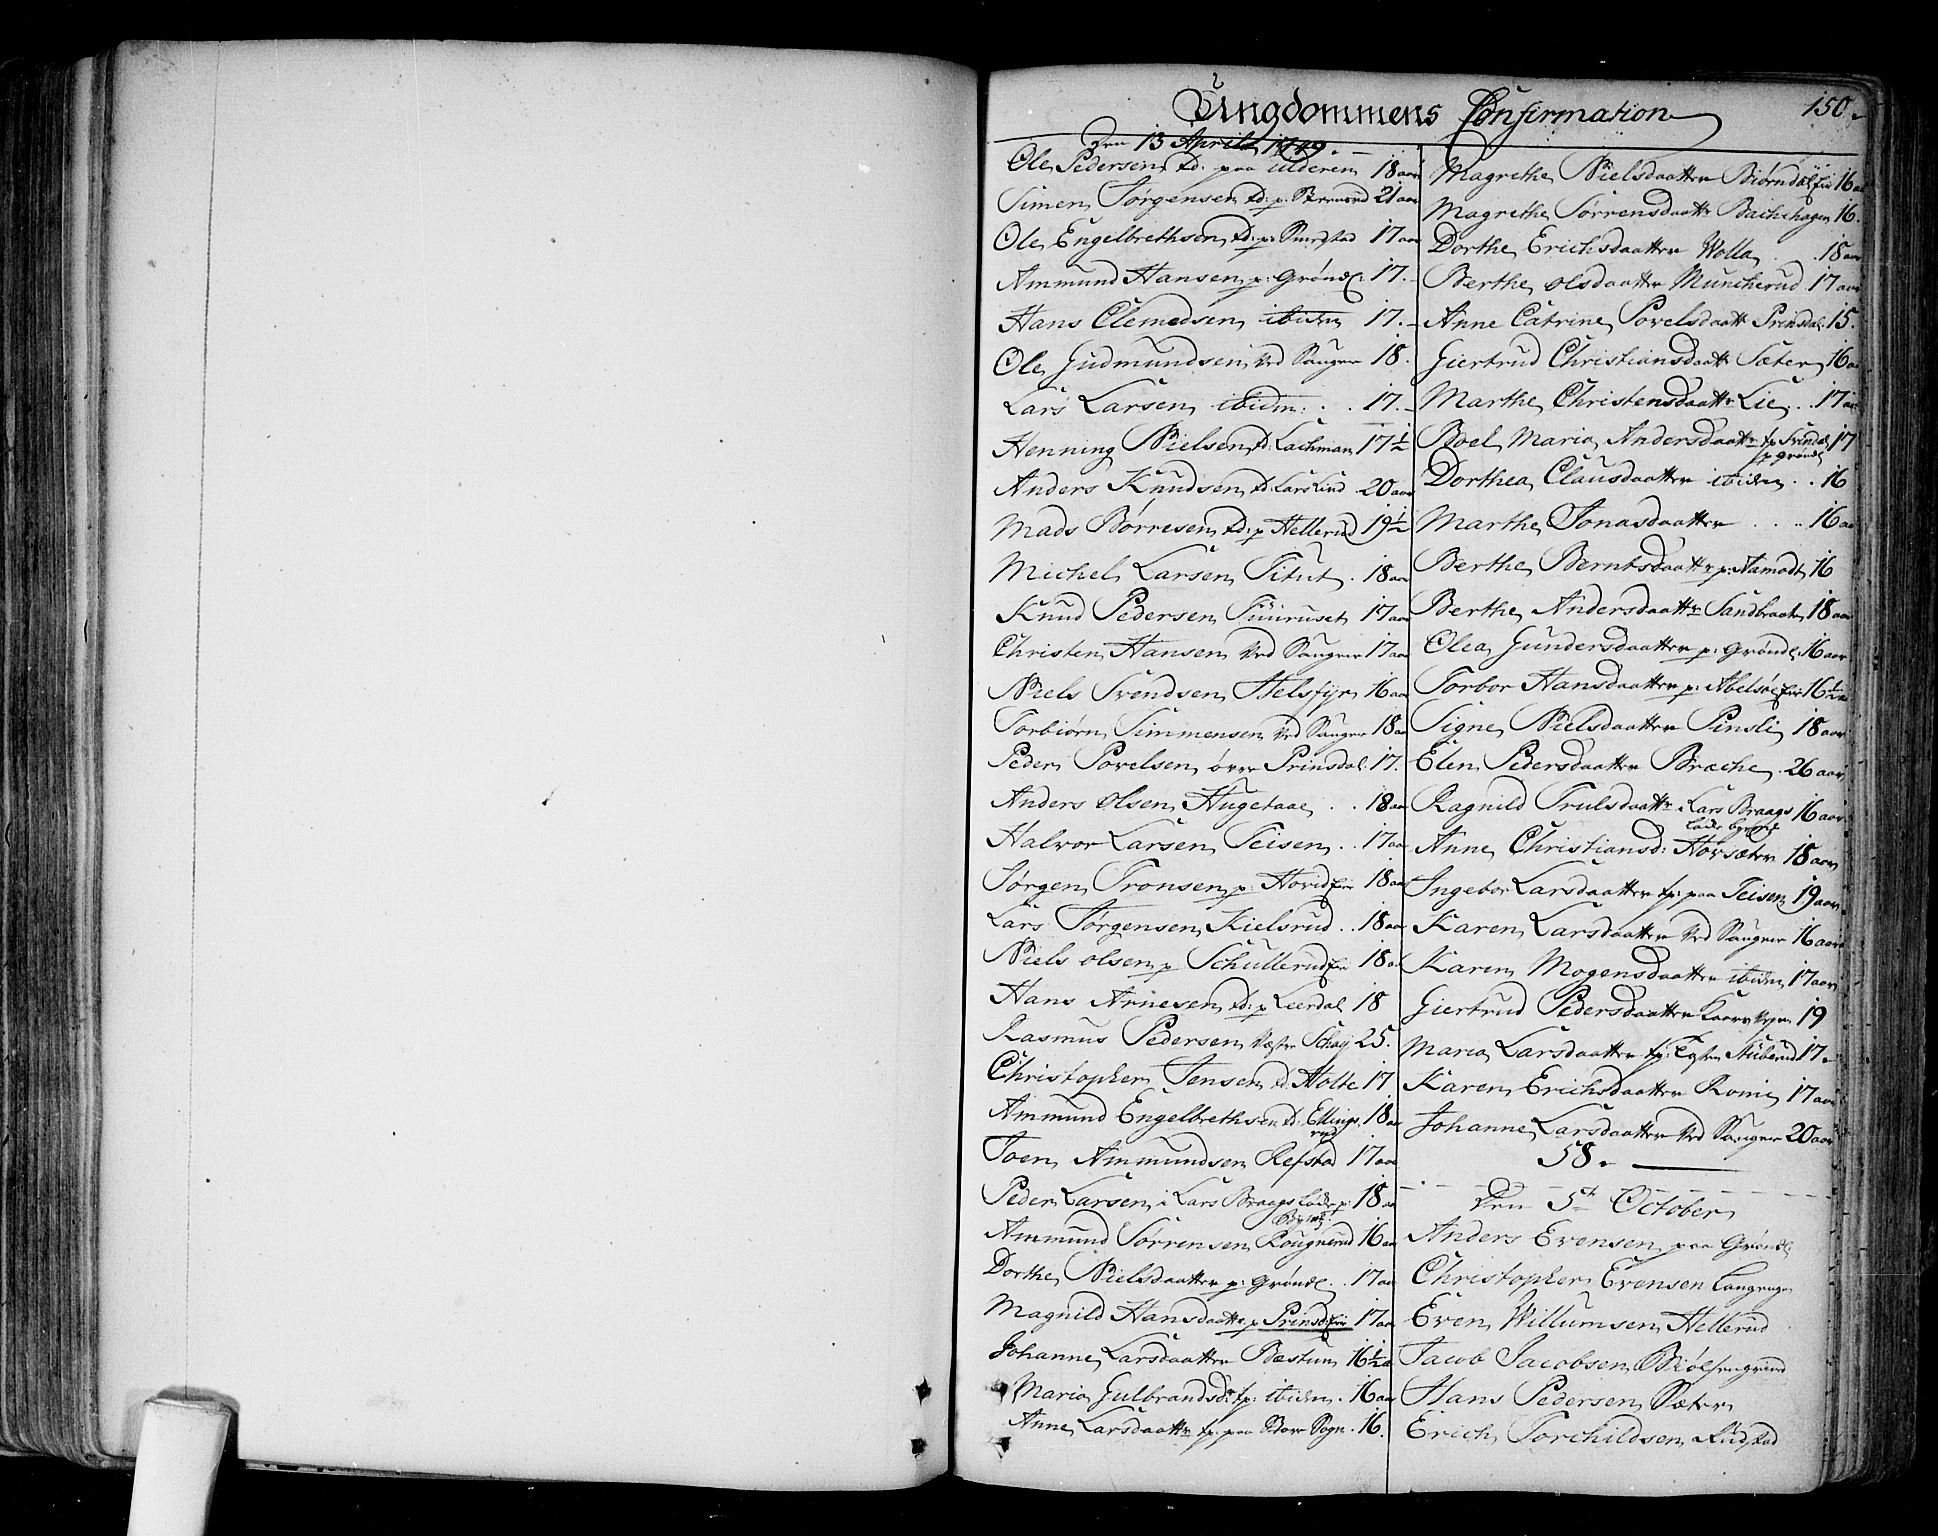 Ungdommens Confirmation
150.
Den 13 April 1749.
Ole Pedersen td. paa 18 aar
Simen Jørgensen td: p. 21 aar
Ole Engelbrethsen td: p: Smedstad 17 aar
Ammund Hansen p: Grøndl: 17.
Hans Clemedsen ibidem 17.
Ole Gudmundsen ved Saugene 18.
Lars Larsen ibidm: . . 17.
Henning Nielsen td: Lachman 17½
Anders Knudsen td: Lars Lind 20 aar
Mads Børresen td: p Hellerud 19½
Michel Larsen Titut . 18 aar
Knud Pedersen Tuuruset 17 aar
Christen Hansen ved Saugene 17 aar
Niels Svendsen Helsfyr 16 aar
Torbiørn Simmensen ved Saugene 18 aar
Peder Povelsen øvre Prinsdal: 17.
Anders Olsen Hugetaae . . 18 aar
Halvor Larsen Teisen . . 17 aar
Jørgen Tronsen p: Hovid 18 aar
Lars Jørgensen Kielsrud . . 18 aar
Niels Olsen p Schullerud 18 a
Hans Arnesen td: p Leerdal 18
Rasmus Pedersen Væstre Schøy 25.
Christopher Jensen td: Holte 17
Ammund Engelbrethsen td: Ellings 18 aar
rud
Joen Ammundsen Refstad 17 aar
Peder Larsen i Lars Braags Lade p: 18 aar
Bÿen
Ammund Sørrensen Rougnerud 16 aar
Dorthe Nielsdaatter p: Grøndl . . 17 aar
Magnild Hansdaattr p Prinsd 17 aar
Johanne Larsdaatter Bæstum 16½ a
Maria Gulbrandsdr tp: ibidem . 16 aar
Anne Larsdaattr tp: paa Store Sogn . 16.
Magrethe Nielsdaatter Biørndal 16 aa
Magrethe Sørrensdaattr Bachehagen 16.
Dorthe Erichsdaatter Wolla . . 18 aar
Berthe Olsdaatter Muncherud 17 aar
Anne Catrine Povelsdaatt Prinsdal: 15.
Giertrud Christiansdaattr Sæter 16 aa
Marthe Christensdaattr Lie . . 17 aar
Boel Maria Andersdaattr tp Svindal 17
p grøndl
Dorthea Clausdaatter ibidem . . 16
Marthe Jonasdaatter . . . . 16 aar
Berthe Berntsdaattr p: Aamodt 16
Berthe Andersdaattr Sandbraaten 18 aar
Olea Gundersdaatter p: Grøndl: 16 aar
Torbor Hansdaatter p: Abelsøe 16½
Signe Nielsdaatter Pinsli 18 aar
Elen Pedersdaatter Bræche . 26 aar
Ragnild Trulsdaattr Lars Braags 16 aar
Lade
Anne Christiansd: Hovsæter 18 aar
Ingebor Larsdaatter tp: paa Teisen 19 aar
Karen Larsdaatter ved Saugene 16 aar
Karen Mogensdaatter ibidem 17 aar
Giertrud Pedersdaatter 19
Maria Larsdaatter tp: Østre Stubberud 17.
Karen Erichsdaatter Romi 17 aar
Johanne Larsdaatter ved Saugene 20 aar
58.
Den 5te October
Anders Evensen paa Grøndl
Christopher Evensen
Even Willumsen Hellerud
Jacob Jacobsen Biølsengrind
Hans Pedersen Sæter
Erich Torchildsen Rudstad